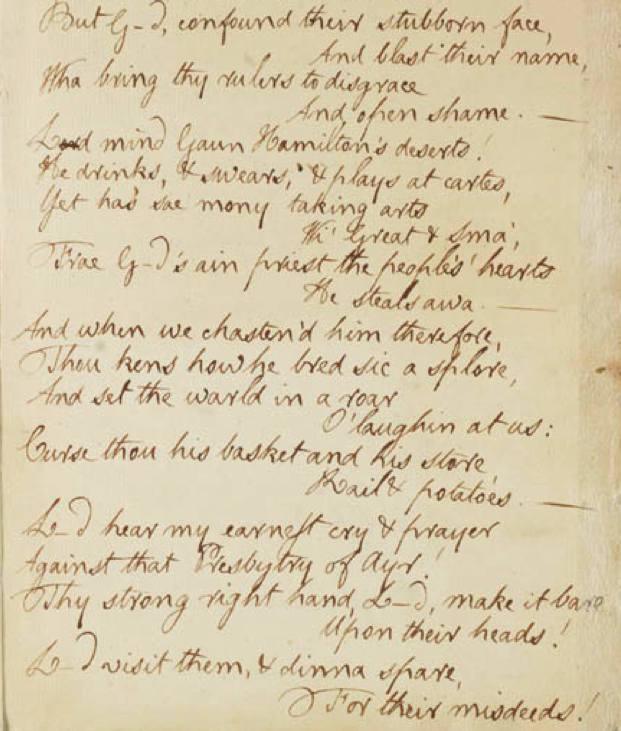 But G-d, confound their stubborn face,
And blast their name,
Wha bring thy rulers to disgrace
And open shame. —
Lord mind Gaun Hamilton's deserts!
He drinks, & swears, & plays at cartes,
Yet has sae mony taking arts
Wi' Great & Sma',
Frae G-d's ain priest the people's hearts
He steals awa. —
And when we chasten'd him therefore,
Thou kens how he bred sic a splore,
And set the warld in a roar
O' laughin at us:
Curse thou his basket and his store
Kail & potatoes. —
L-d hear my earnest cry & prayer
Against that Presbytry of Ayr!
Thy strong right hand, L-d, make it bare
Upon their heads!
L-d visit them, & dinna spare,
For their misdeeds!